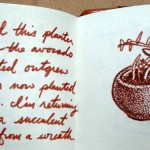 d this planter
the avocado
ted outgrew
now planted
I'm returning
a succulent
from a wreath